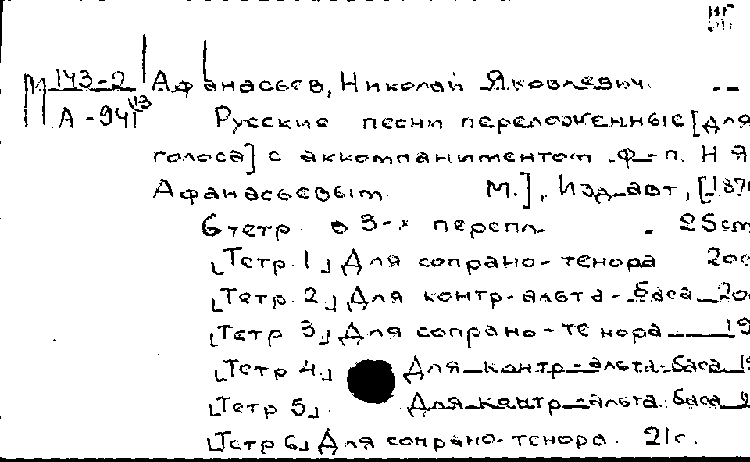 М 143-2 Афанасьев, Николай Яковлевич.
А-941 Русские песни переложенные [для
голоса] с аккомпаниментом ф-п. Н Я
Афанасьевым. М.], Изд. авт, [187
6 тетр. в 3-х перепл. 25cm
[Тетр. 1] Для сопрано-тенора 20с
[Тетр. 2] Для контр-альта-баса 20
[Тетр 3] Для сопрано-тенора 19
[Тетр 4] Для контр-альта-баса 19
[Тетр 5] Для контр-альта-баса
[Тетр 6] Для сопрано-тенора. 21с.